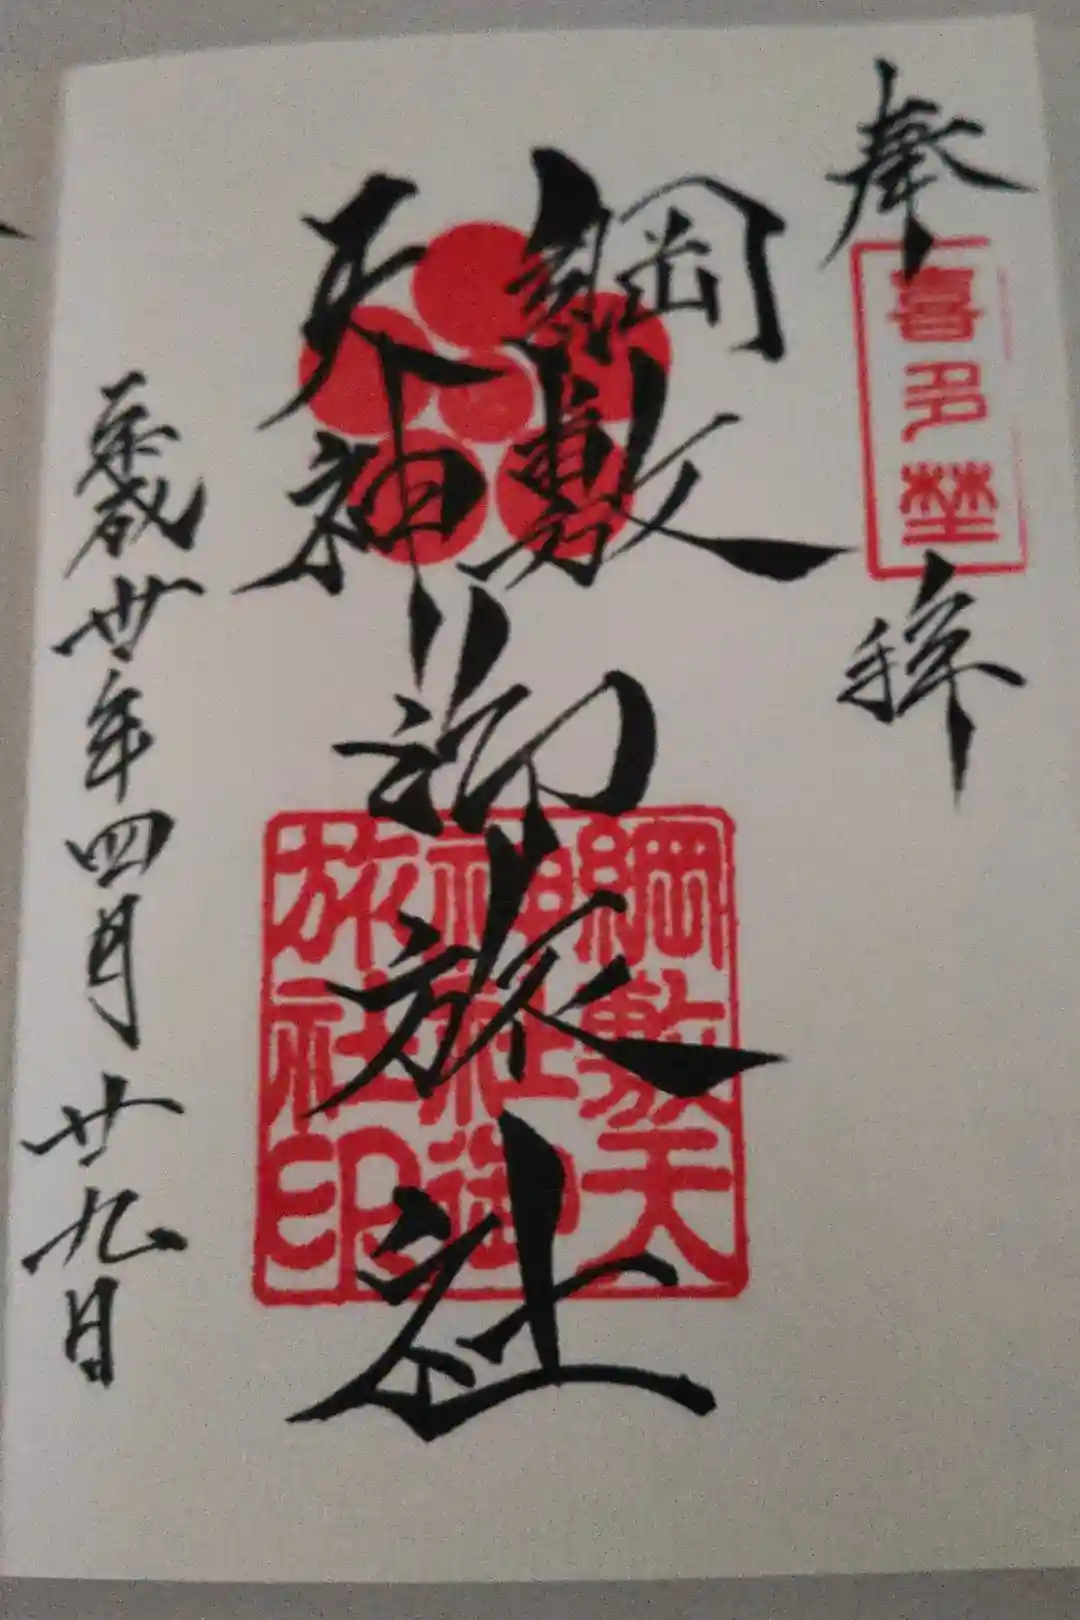 奉拝
喜多埜
綱敷
天神
御旅社
綱敷天
神社御
旅社印
平成丗年四月廿九日